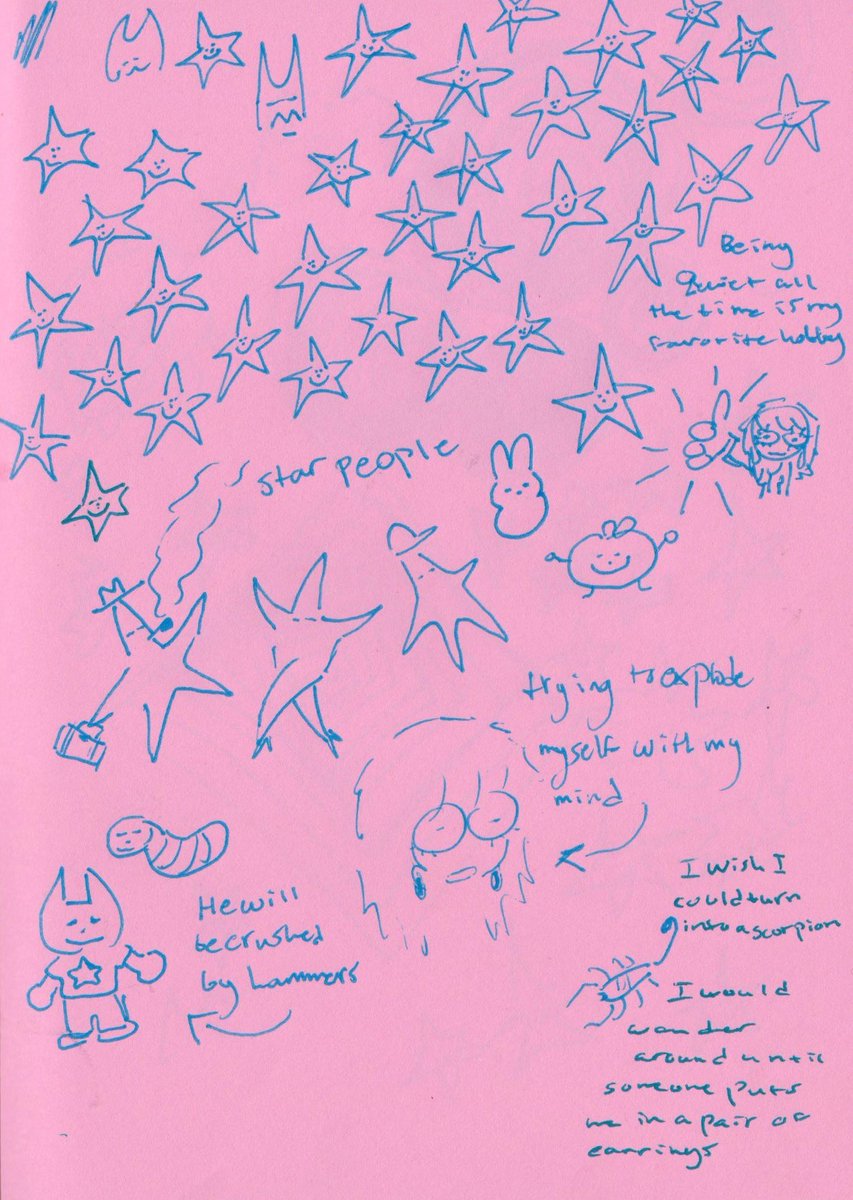 Being
Quiet all
the time is my
favorite hobby
star people
trying to explode
myself with my
mind
He will
be crushed
by hammers
I wish I
could turn
into a scorpion
I would
wander
around until
someone puts
me in a pair of
earrings